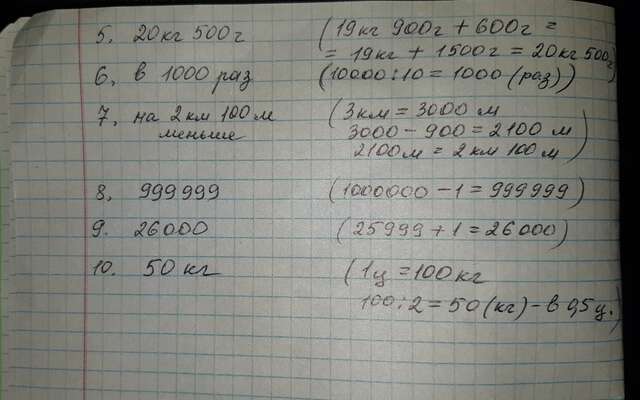 5. 20кг 500г (19кг 900г + 600г =
= 19кг + 1500г = 20кг 500г)
6. в 1000 раз (10000:10 = 1000 (раз))
7. на 2 км 100 м (3км = 3000 м
меньше 3000 - 900 = 2100 м
2100м = 2 км 100 м)
8. 999999 (1000000 - 1 = 999999)
9. 26000 (25999 + 1 = 26000)
10. 50 кг (1ц = 100 кг
100:2 = 50 (кг) - в 0,5 ц.)